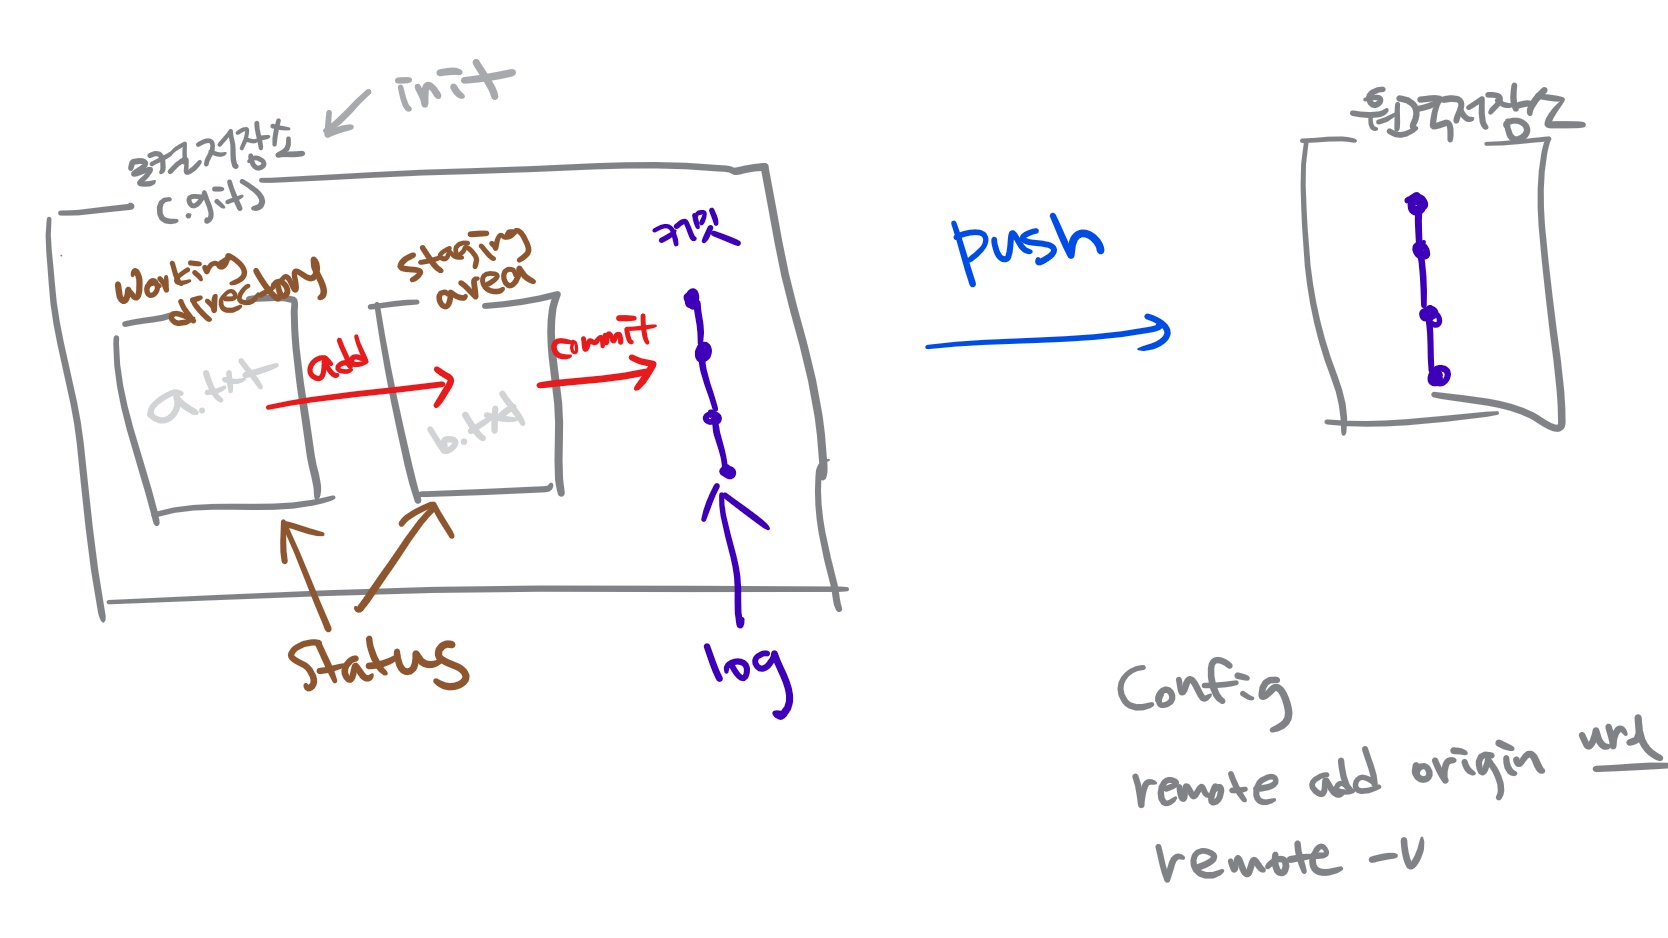 init
로컬저장소
(.git)
working
directory
staging
area
커밋
a.txt
add
b.txt
commit
status
log
push
원격저장소
Config
remote add origin url
remote -v